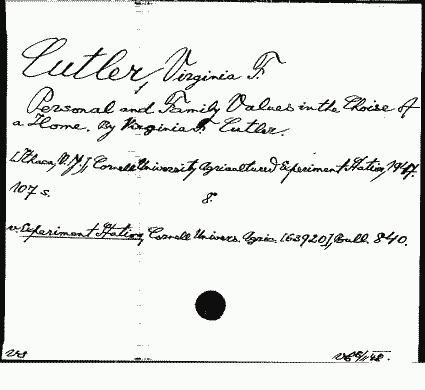 Cutler, Virginia F.
Personal and Family Values in the Choise of
a Home. By Virginia F. Cutler.
[Ithaca, N.Y.] Cornell University Agricultural Experiment Station, 1947.
107 s. 8.
v. Experiment Station, Cornell Univers. Agric. [63920], Bull. 840.
VS